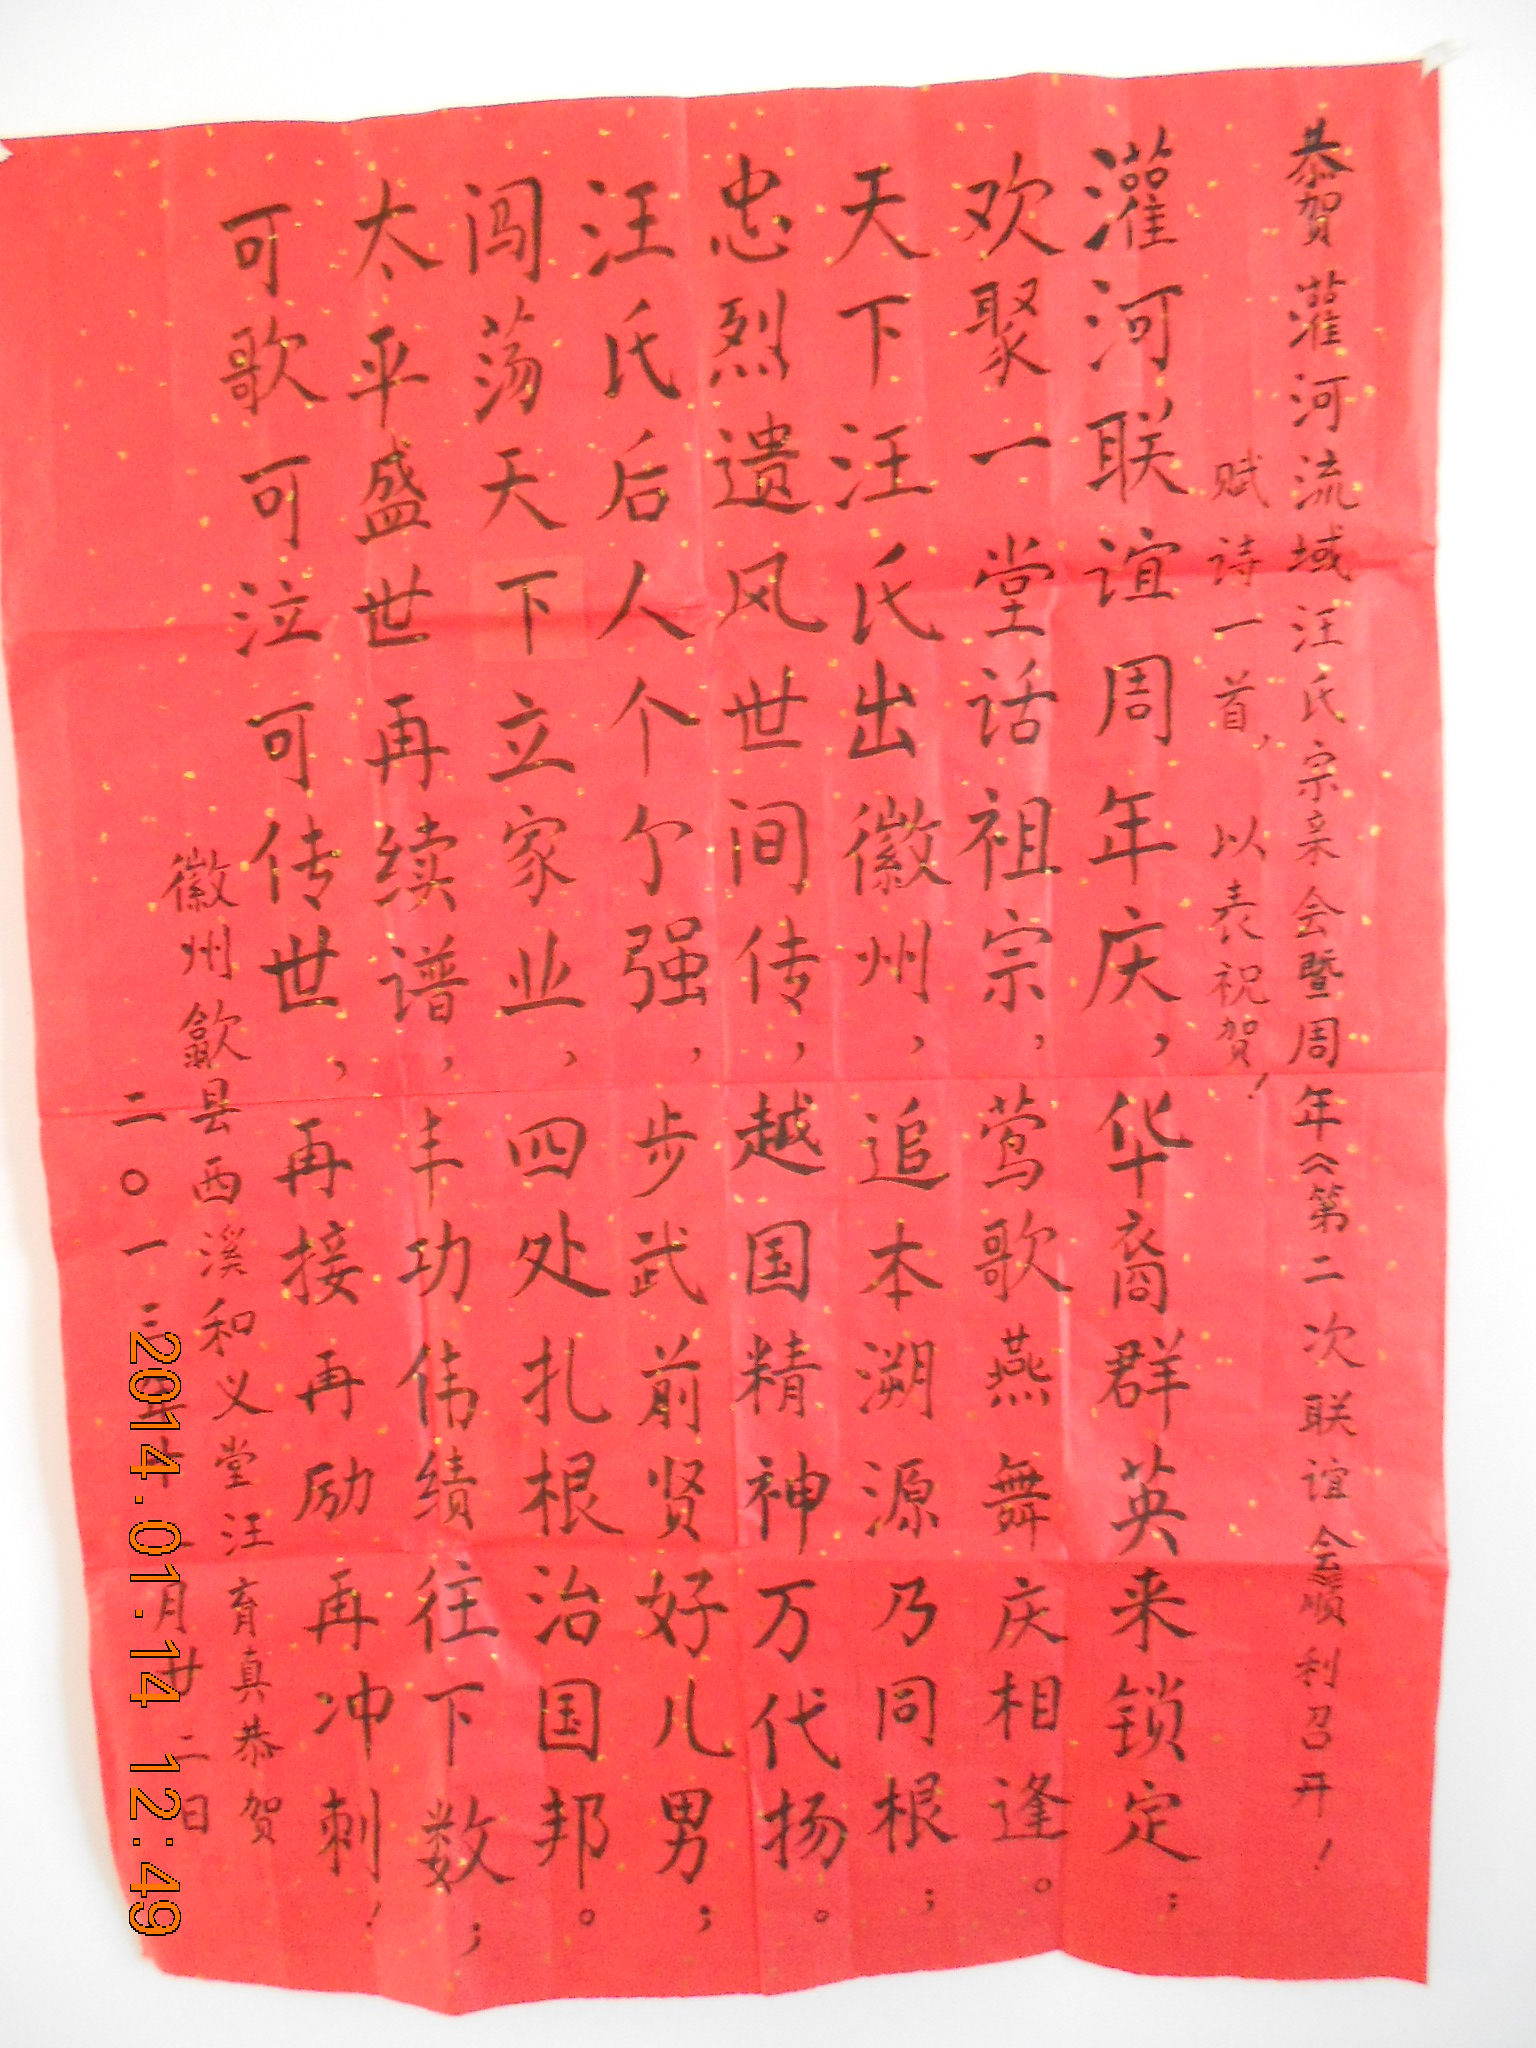 恭贺灌河流域汪氏宗亲会暨周年《第二次联谊会》顺利召开！
赋诗一首，以表祝贺！
灌河联谊周年庆，华裔群英来锁定；
欢聚一堂话祖宗，莺歌燕舞庆相逢。
天下汪氏出徽州，追本溯源乃同根；
忠烈遗风世间传，越国精神万代扬。
汪氏后人个个强，步武前贤好儿男；
闯荡天下立家业，四处扎根治国邦。
太平盛世再续谱，丰功伟绩往下数；
可歌可泣可传世，再接再励再冲刺！
徽州歙县西溪和义堂汪育真恭贺
二〇一三年十一月廿二日
2014.01.14 12:49